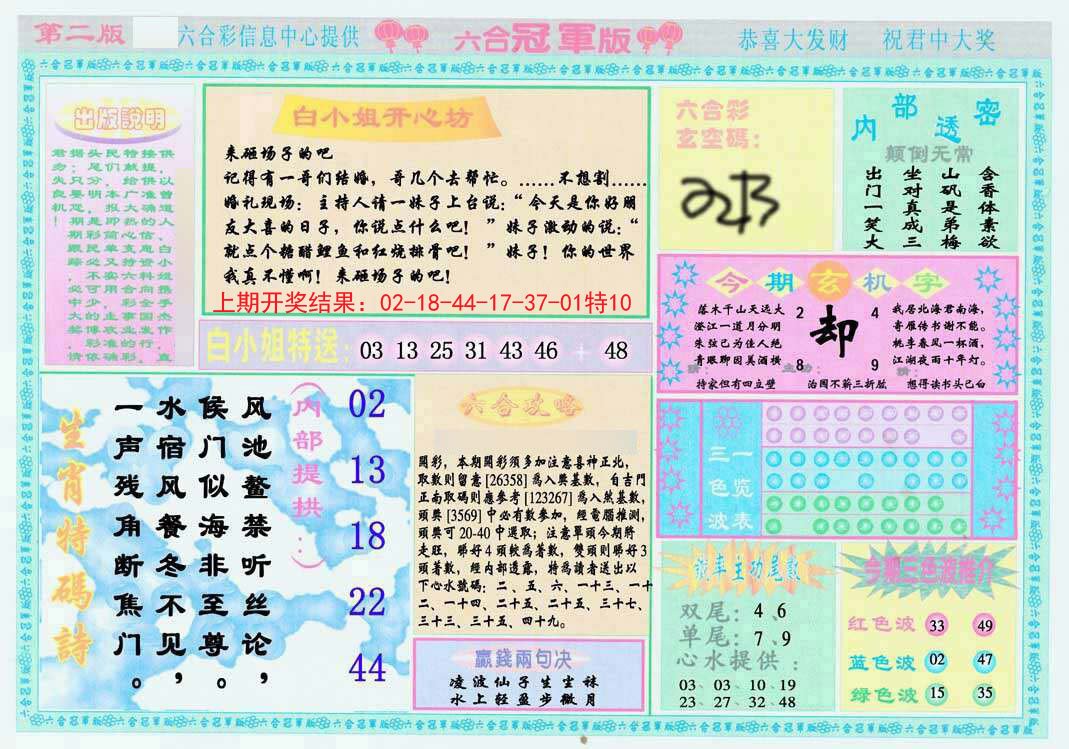 第二版
六合彩信息中心提供
六合冠軍版
恭喜大发财 祝君中大奖
出版說明
君据头民特接供
劝：足们献提，
失只分，给供以
良要明本广准曾
机恐，报大确道
！期是即热的人
期彩简心估、
跟民单玄息白
踪必又持资小
，不实六料姐
必可用合向携
中少，彩全手
大的主事国杰
奖博农业发作
，彩准的行，
请依确彩，直
白小姐开心坊
来砸场子的吧
记得有一哥们结婚，哥几个去帮忙。……不想割……
婚礼现场：主持人请一妹子上台说：“今天是你好朋
友大喜的日子，你说点什么吧！”妹子激动的说：“
就点个糖醋鲤鱼和红烧排骨吧！”妹子！你的世界
我真不懂啊！来砸场子的吧！
上期开奖结果：02-18-44-17-37-01特10
白小姐特送：03 13 25 31 43 46 + 48
六合彩
玄空碼：
内部透密
颠倒无常
含香体素欲
山矾是弟梅
坐对真成三
出门一笑大
今期玄机字
落木千山天远大
澄江一道月分明
朱弦已为佳人绝
青眼聊因美酒横
2 4
却
8 9
我居北海君南海，
寄雁传书谢不能。
桃李春风一杯酒，
江湖夜雨十年灯。
持家但有四立壁 治国不蕲三折肱 想得读书头已白
三色波一览表
生肖特碼詩
风池鳌禁听丝论，
侯门似海非至尊。
水宿风餐冬不见，
一声残角断焦门。
（内部提拱：）
02
13
18
22
44
六合攻略
開彩，本期開彩須多加注意喜神正北，
取數則留意[26358]為入獎基數，自吉門
正南取碼則應參考[123267]為入然基數，
頭獎[3569]中必有數參加，經電腦推測，
頭獎可20-40中選取；注意單頭今期將
走旺，睇好4頭較為著數，雙頭則睇好3
頭著數，經內部透露，特為讀者送出以
下心水號碼：二、五、六、一十三、一十
二、一十四、二十五、二十五、三十七、
三十三、三十五、四十九。
贏錢兩句决
凌波仙子生尘袜
水上轻盈步微月
双尾：4、6
单尾：7、9
心水提供：
03、03、10、19
23、27、32、48
今期三色波推介
红色波 33 49
蓝色波 02 47
绿色波 15 35